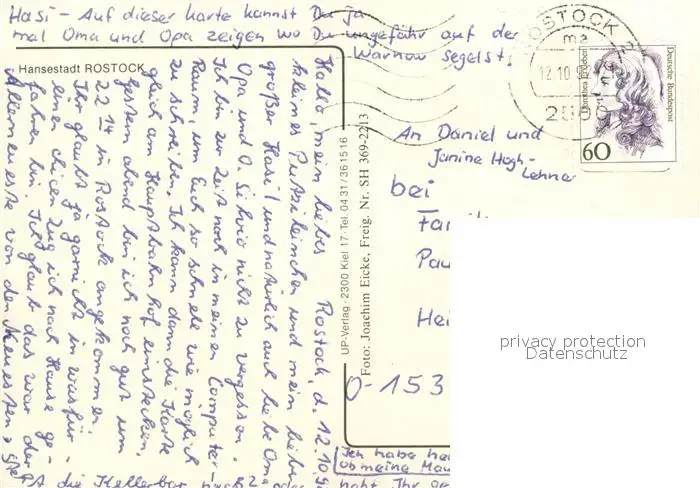 Hasi - Auf dieser Karte kannst Du ja
mal Oma und Opa zeigen wo Du ungefähr auf der
Warnow segelst.
Hansestadt ROSTOCK
Rostock, d. 12.10.
Hallo, mein liebes
kleines Putzibeinchen und mein lieber
großer Hasi! und natürlich auch liebe Oma
Opa und O. Silvio nicht zu vergessen.
Ich bin zur Zeit noch in meinen Computer-
Raum, um Euch so schnell wie möglich
zu schreiben. Ich kann dann die Karte
gleich am Hauptbahnhof einstecken.
Gestern abend bin ich noch gut um
22 14 in Rostock angekommen.
Ihr glaubt ja garnicht in was für
einen Zug ich nach Hause ge-
fahren bin. Ich glaub das war der
Allerneueste von den Neuesten,
die Kellerbar
UP-Verlag · 2300 Kiel 17 · Tel. 04 31/36 15 16
Foto: Joachim Eicke, Freig. Nr. SH 369-2213
ROSTOCK
12.10.9
2500
Deutsche Bundespost
60
An Daniel und
Janine Hagh-
Lehner
bei
Fami
Pau
Hei
O-153
Ich habe
ob meine Mau
Ihr
privacy protection
Datenschutz